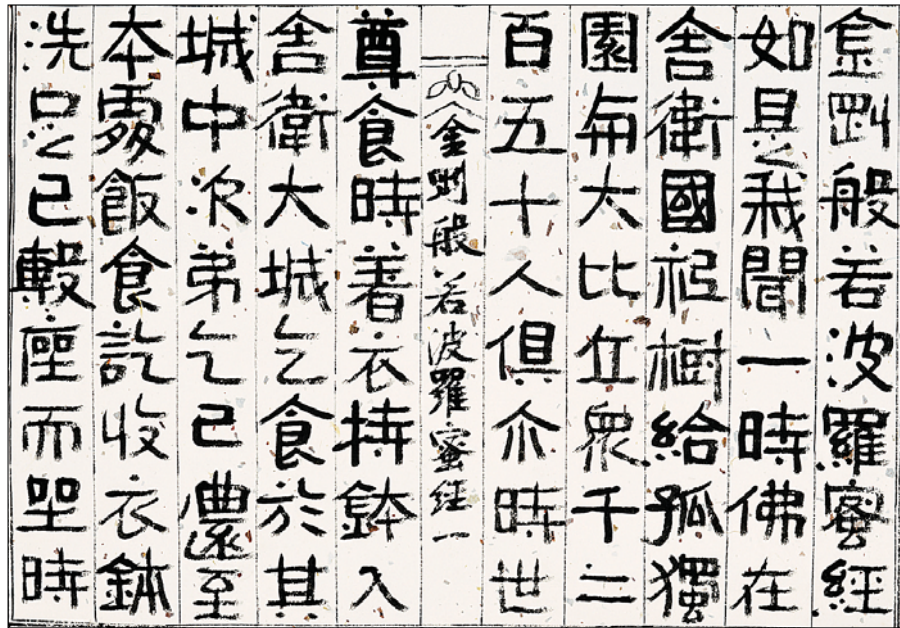 金剛般若波羅蜜經
如是我聞一時佛在
舍衛國祇樹給孤獨
園與大比丘衆千二
百五十人俱尒時世
金剛般若波羅蜜經一
尊食時著衣持鉢入
舍衛大城乞食於其
城中次弟乞已還至
本處飯食訖收衣鉢
洗足已敷座而坐時